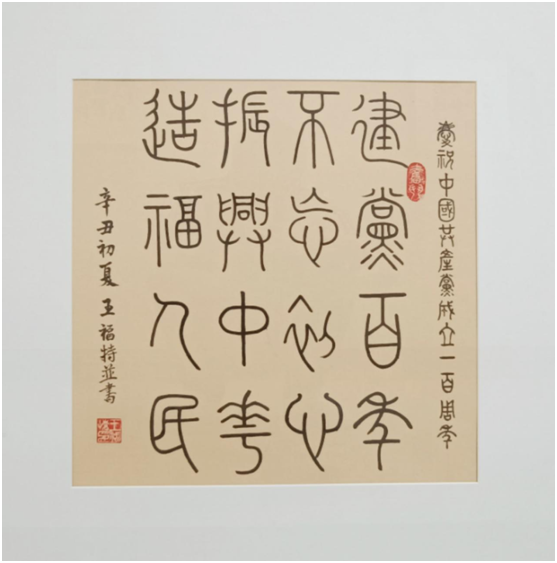 慶祝中國共產黨成立一百周年
建黨百年
不忘初心
振興中華
造福人民
辛丑初夏王福特並書